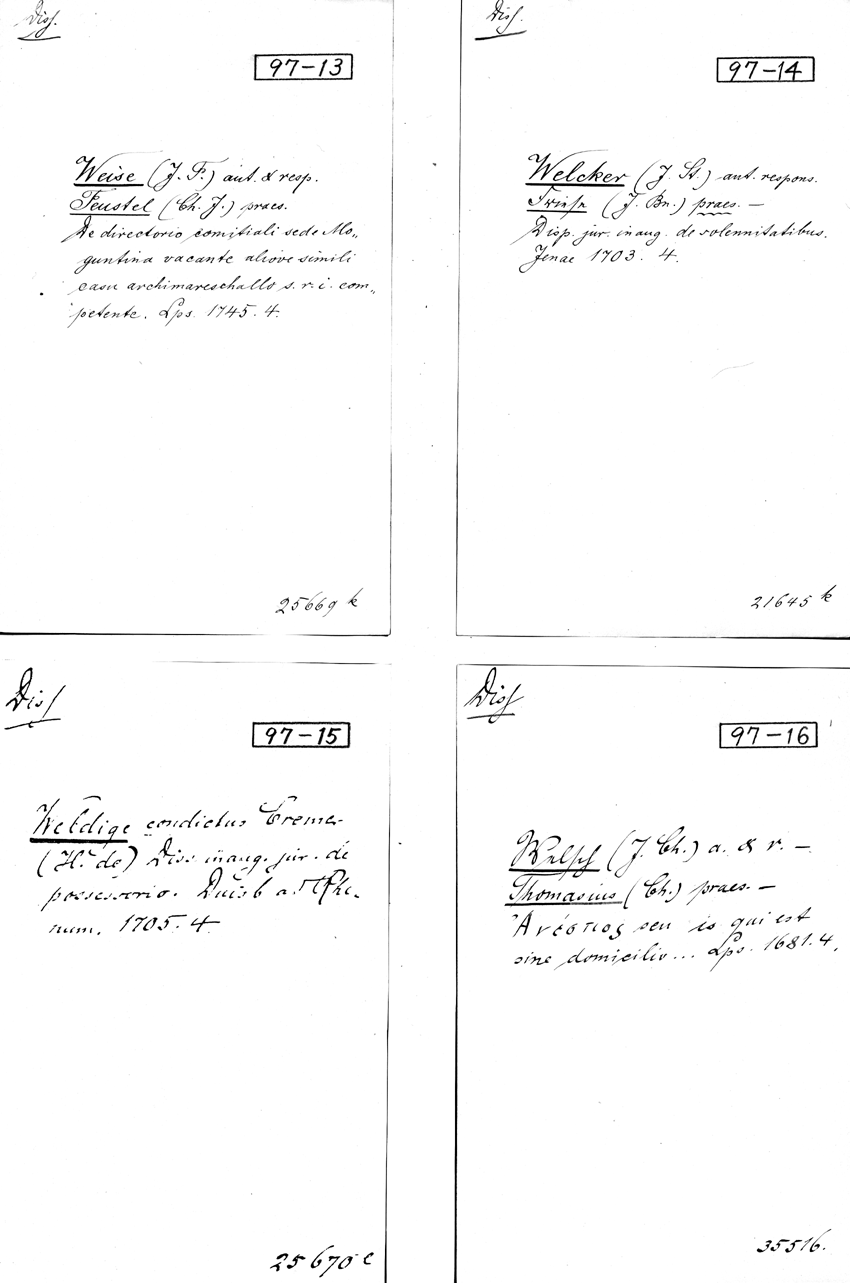 Diss.
97-13
Weise (J. F.) aut. & resp.
Feustel (Ch. J.) praes.
De directorio comitiali sede Mo„
guntina vacante aliove simili
casu archimareschallo s. r. i. com„
petente. Lps. 1745. 4.
25669 k
Diss.
97-14
Welcker (J. St.) aut. respons.
Friese (J. Bn.) praes. —
Disp. jur. inaug. de solennitatibus.
Jenae 1703. 4.
21645 k
Diss
97-15
Weldige condictus Cremer
(H. de) Diss inaug. jur. de
possessorio. Duisb a. Rhe-
num. 1705. 4
25670 e
Diss
97-16
Welsch (J. Ch.) a. & r. —
Thomasius (Ch.) praes. —
Ἀνέστιος seu is qui est
sine domicilio... Lps. 1681. 4.
35516.